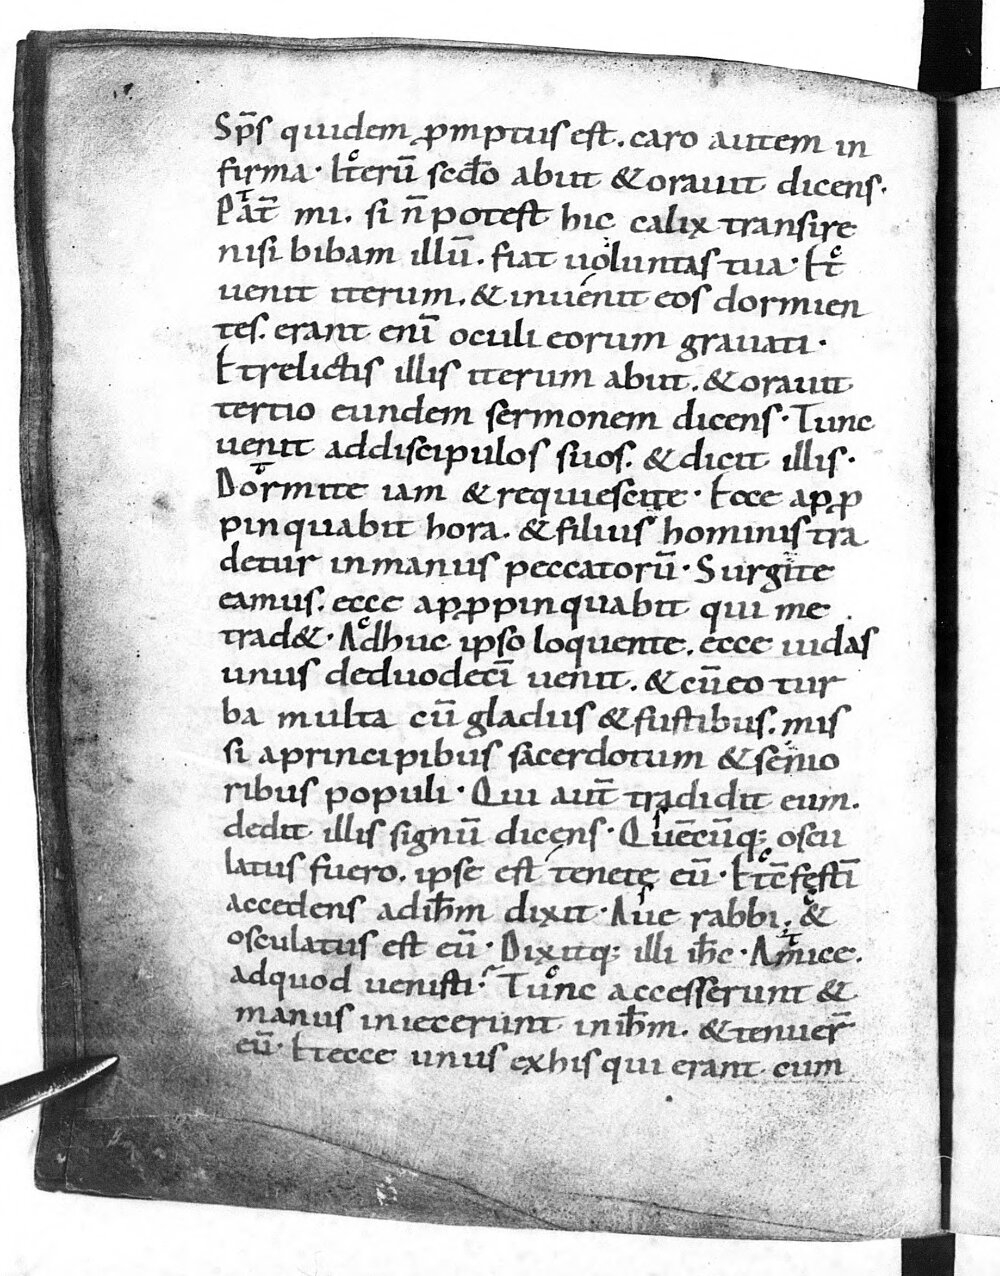 Sp̄s quidem ꝓmptus est. caro autem in
firma. Iterū scd̄o abiit & orauit dicens.
Pat̄ mi. si n̄ potest hic calix transire
nisi bibam illū. fiat uoluntas tua. Et
uenit iterum. & inuenit eos dormien
tes. erant eni̅ oculi eorum grauati.
Et relictis illis iterum abiit. & orauit
tertio eundem sermonem dicens. Tunc
uenit addiscipulos suos. & dicit illis.
Dormite iam & requiescite. Ecce aꝓp
pinquabit hora. & filius hominis tra
detur inmanus peccatorū. Surgite
eamus. ecce aꝓppinquabit qui me
trad&. Adhuc ipso loquente. ecce iudas
unus deduodecī uenit. & cū eo tur
ba multa cū gladiis & fustibus. mis
si aprincipibus sacerdotum & senio
ribus populi. Qui aut̄ tradidit eum.
dedit illis signū dicens. Quēcūq; oscu
latus fuero. ipse est tenete eū. Et cf̄estī
accedens adih̄m dixit. Aue rabbi. &
osculatus est eū. Dixitq; illi ih̄c. Amice.
adquod uenisti. Tunc accesserunt &
manus iniecerunt inih̄m. & tenuer̄
eū. Et ecce unus exhis qui erant cum